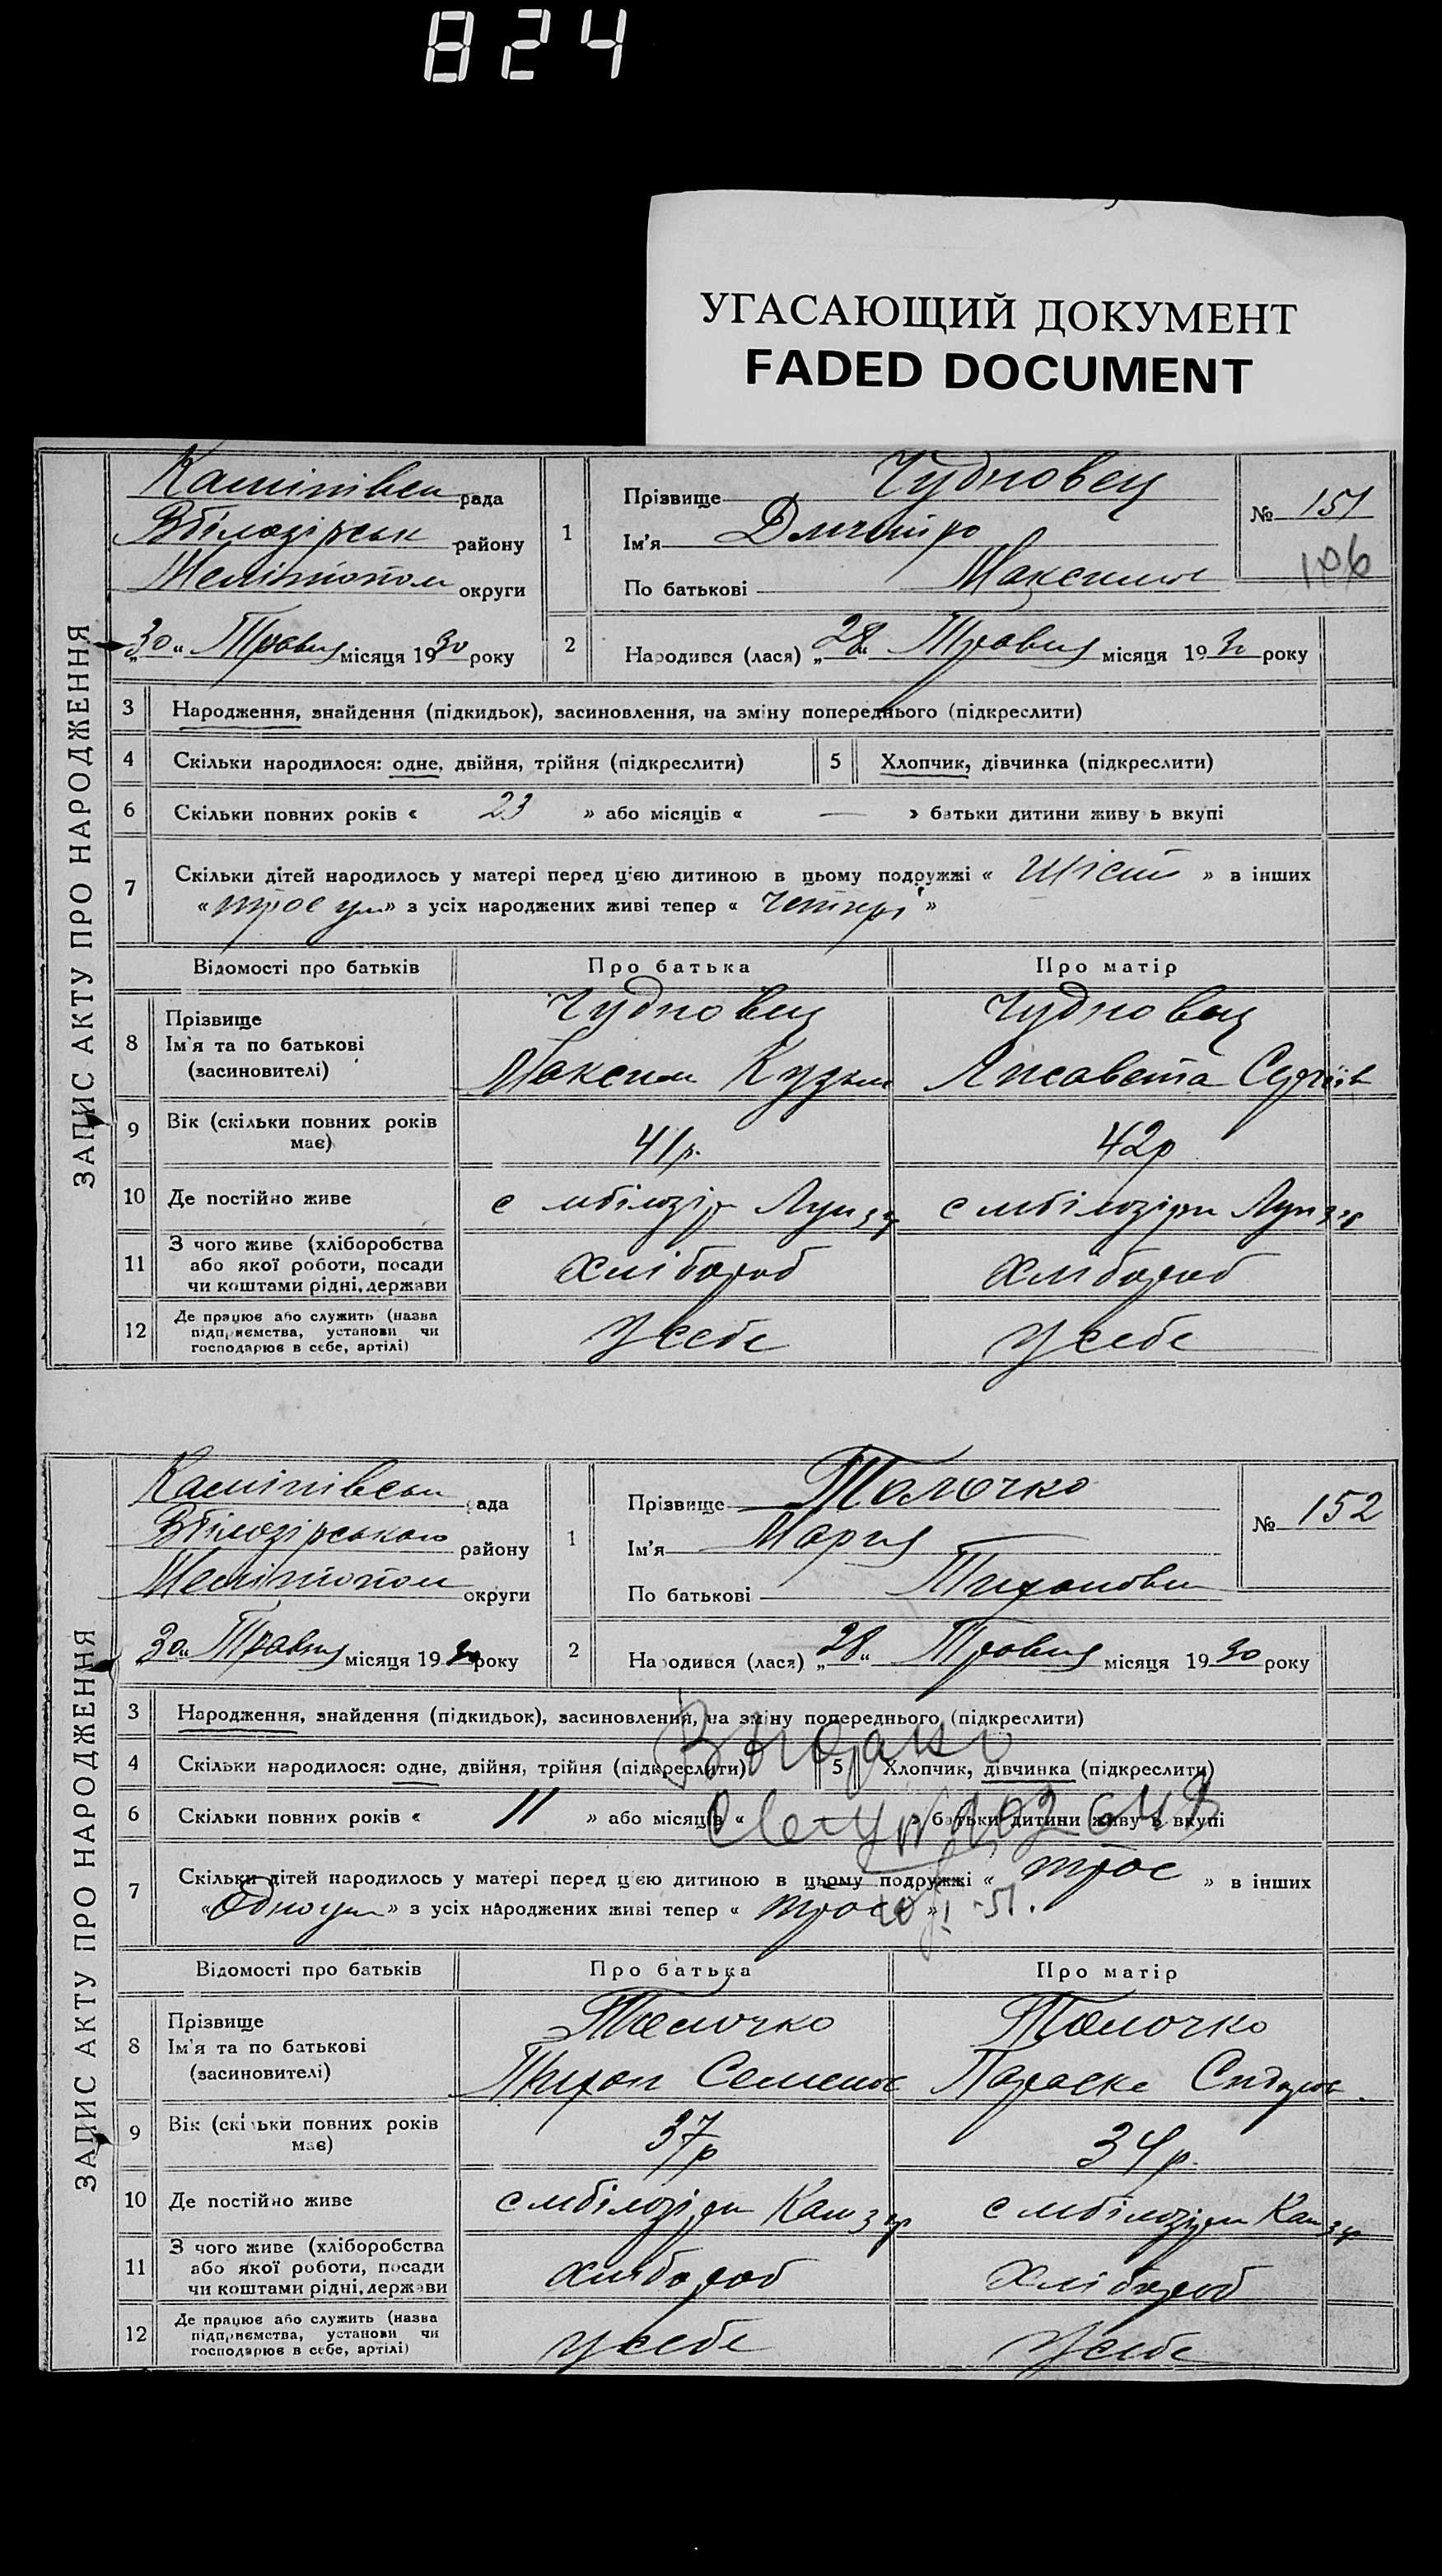 824
УГАСАЮЩИЙ ДОКУМЕНТ
FADED DOCUMENT
ЗАПИС АКТУ ПРО НАРОДЖЕННЯ
рада
району
Мелітопол округи
„30“ Травня місяця 1930 року
1
Прізвище Чудновец
Ім'я Дмитро
По батькові Максимов
№ 151
106
2
Народився (лася) „28“ Травня місяця 1930 року
3 Народження, знайдення (підкидьок), засиновлення, на зміну попереднього (підкреслити)
4 Скільки народилося: одне, двійня, трійня (підкреслити) 5 Хлопчик, дівчинка (підкреслити)
6 Скільки повних років « 23 » або місяців « — » батьки дитини живу ь вкупі
7 Скільки дітей народилось у матері перед цією дитиною в цьому подружжі « Шість » в інших
« троє ум » з усіх народжених живі тепер « Четверо »
Відомості про батьків Про батька Про матір
8 Прізвище
Ім'я та по батькові
(засиновителі)
Чудновец
Максим Кузьм
Чудновец
Лисавета Сергіїв
9 Вік (скільки повних років має) 41р. 42р
10 Де постійно живе с мбілозір с мбілозірки
11 З чого живе (хліборобства
або якої роботи, посади
чи коштами рідні, держави
Хлібороб Хлібороб
12 Де працює або служить (назва
підприємства, установи чи
господарює в себе, артілі)
У себе У себе
ЗАПИС АКТУ ПРО НАРОДЖЕННЯ
рада
Вбілозірського району
Мелітопол округи
30 „ Травня місяця 1930 року
1
Прізвище Толочко
Ім'я Мария
По батькові Тихоновн
№ 152
2
Народився (лася) „28“ Травня місяця 1930 року
3 Народження, знайдення (підкидьок), засиновлення, на зміну попереднього (підкреслити)
4 Скільки народилося: одне, двійня, трійня (підкреслити) 5 Хлопчик, дівчинка (підкреслити)
6 Скільки повних років « 11 » або місяців « » батьки дитини живу ь вкупі
7 Скільки дітей народилось у матері перед цією дитиною в цьому подружжі « троє » в інших
« Одно ум » з усіх народжених живі тепер « троє »
Відомості про батьків Про батька Про матір
8 Прізвище
Ім'я та по батькові
(засиновителі)
Толочко
Тихон Семенов
Толочко
Параска Сидоров
9 Вік (скільки повних років має) 37р 34р.
10 Де постійно живе с мбілозірки с мбілозірки
11 З чого живе (хліборобства
або якої роботи, посади
чи коштами рідні, держави
Хлібороб Хлібороб
12 Де працює або служить (назва
підприємства, установи чи
господарює в себе, артілі)
У себе У себе